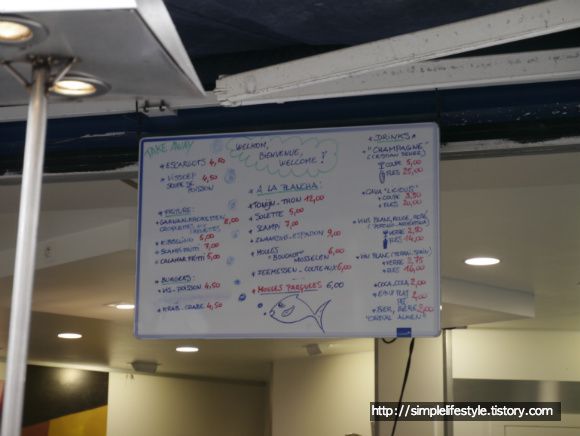 TAKE AWAY
* ESCARGOTS 4,50
* VISSOEP 4,50
SOUPE DE
POISSON
* FRITURE:
* GARNAALKROKETTEN 8,00
CROQUETTES AUX
CREVETTES
* KIBBELING 5,00
* SCAMPI FRITTI 7,00
* CALAMAR FRITTI 5,00
* BURGERS:
* VIS - POISSON 4,50
* KRAB - CRABE 4,50
WELKOM,
BIENVENUE,
WELCOME!
* A LA PLANCHA:
* TONIJN - THON 12,00
* SOLETTE 5,00
* SCAMPI 7,00
* ZWAARDVIS - ESPADON 9,00
* MOULES 6,00
"BOUCHOT"
MOSSELEN
* ZEEMESSEN - COUTEAUX 6,00
* MOULES PARQUEES 6,00
* DRINKS *
* "CHAMPAGNE"
COUPE 5,00
FLES 25,00
* CAVA "LICIOUS"
* COUPE 3,50
* FLES 20,00
* VIN BLANC, ROUGE, ROSÉ
VERRE 2,50
FLES 14,00
* VIN BLANC
* VERRE 2,75
* FLES 16,00
* COCA, COLA 2,50
* EAU PLAT 2,00
* BIER, BIÈRE 2,00
http://simplelifestyle.tistory.com